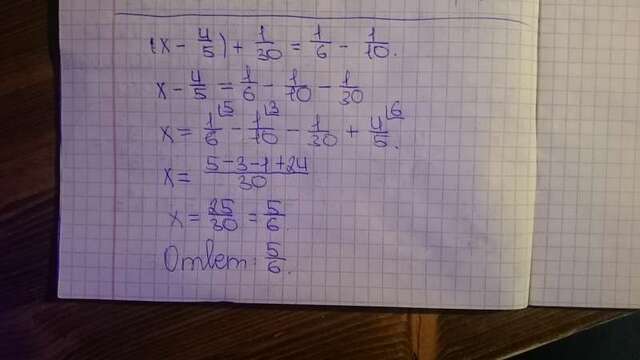 (x - 4/5) + 1/30 = 1/6 - 1/10.
x - 4/5 = 1/6 - 1/10 - 1/30
x = 1/6⌊5 - 1/10⌊3 - 1/30 + 4/5⌊6.
x = 5-3-1+24/30
x = 25/30 = 5/6.
Ответ: 5/6.